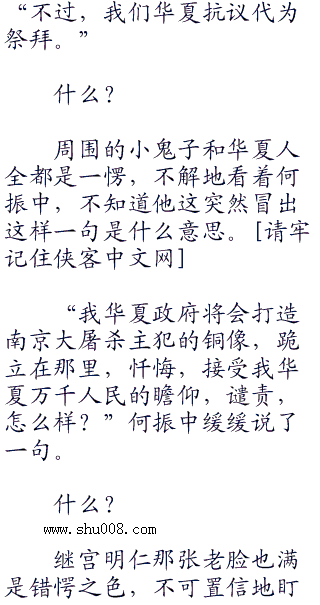 “不过，我们华夏抗议代为
祭拜。”
什么？
周围的小鬼子和华夏人
全都是一愣，不解地看着何
振中，不知道他这突然冒出
这样一句是什么意思。[请牢
记住侠客中文网]
“我华夏政府将会打造
南京大屠杀主犯的铜像，跪
立在那里，忏悔，接受我华
夏万千人民的瞻仰，谴责，
怎么样？”何振中缓缓说了
一句。
什么？
www.shu008.com
继宫明仁那张老脸也满
是错愕之色，不可置信地盯